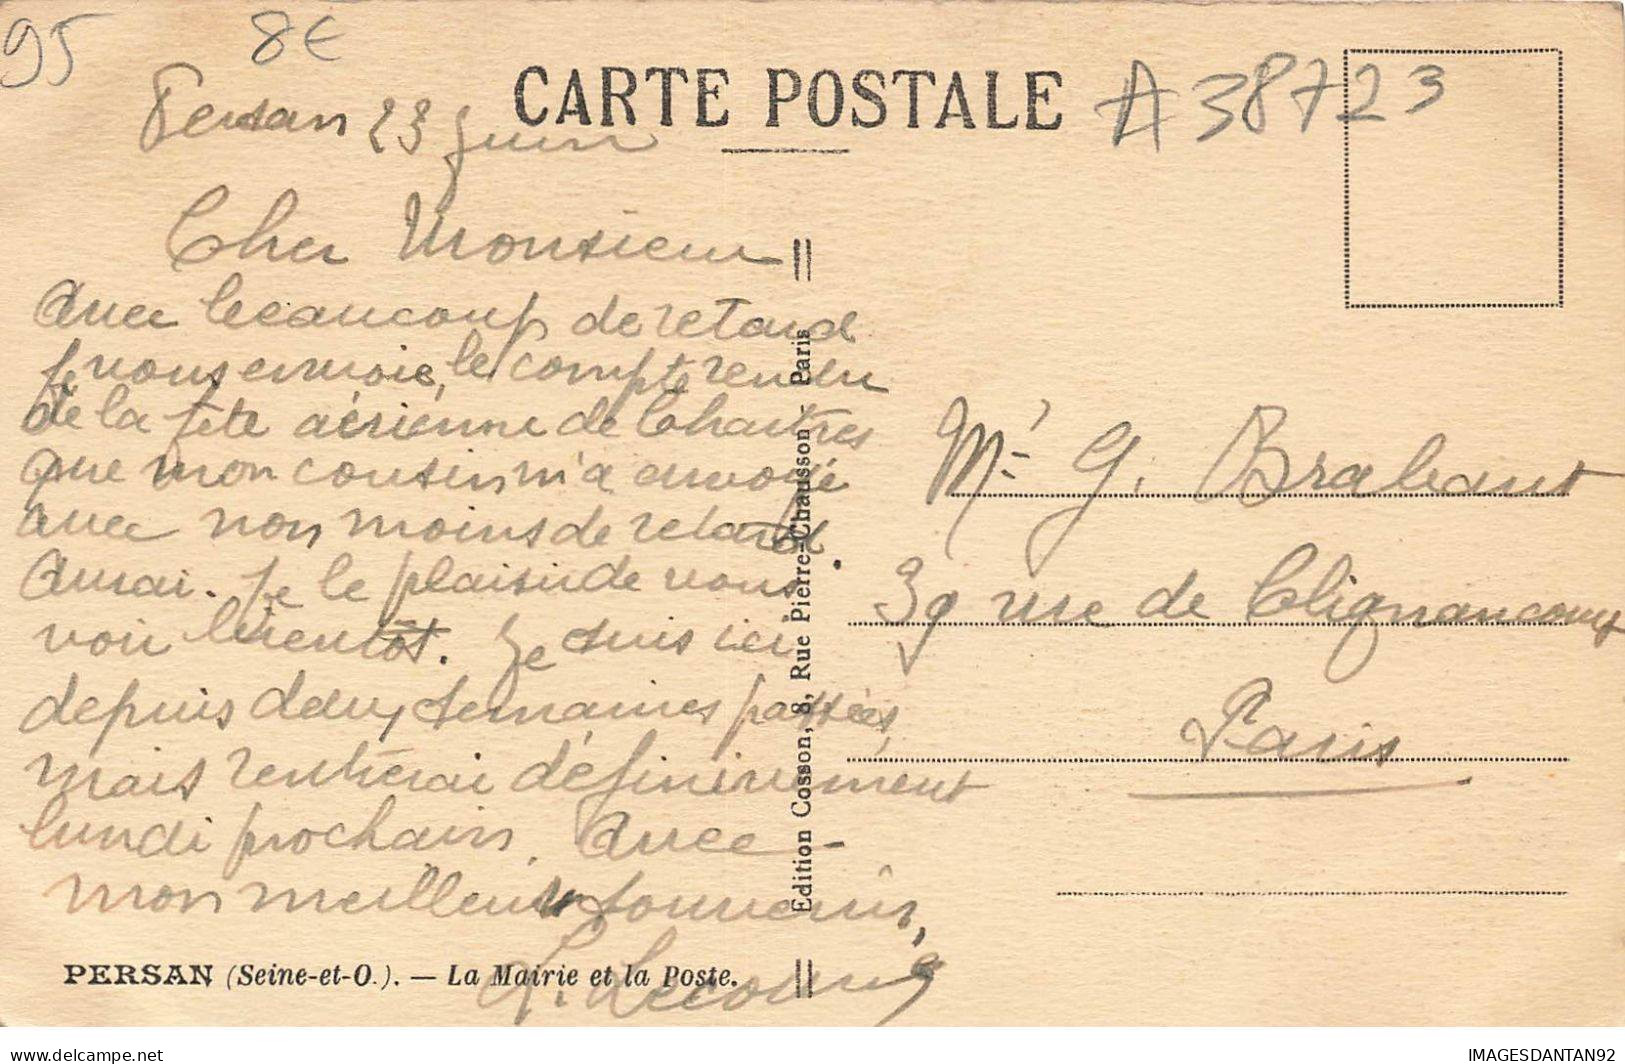 95
8€
CARTE POSTALE
A38723
Persan 23 Juin
Cher Monsieur
Avec beaucoup de retard
je vous envoie, le compte rendu
de la fête aérienne de Chartres
que mon cousin m'a envoyé
avec non moins de retard.
Aurai-je le plaisir de vous
voir bientôt. Je suis ici
depuis deux semaines passées,
mais rentrerai définivement
lundi prochain. Avec
mon meilleur souvenir,
PERSAN (Seine-et-O.). — La Mairie et la Poste.
Edition Cosson, 8, Rue Pierre-Chausson - Paris
Mr G. Brabant
39 rue de Clignancourt
Paris
delcampe.net
IMAGESDANTAN92